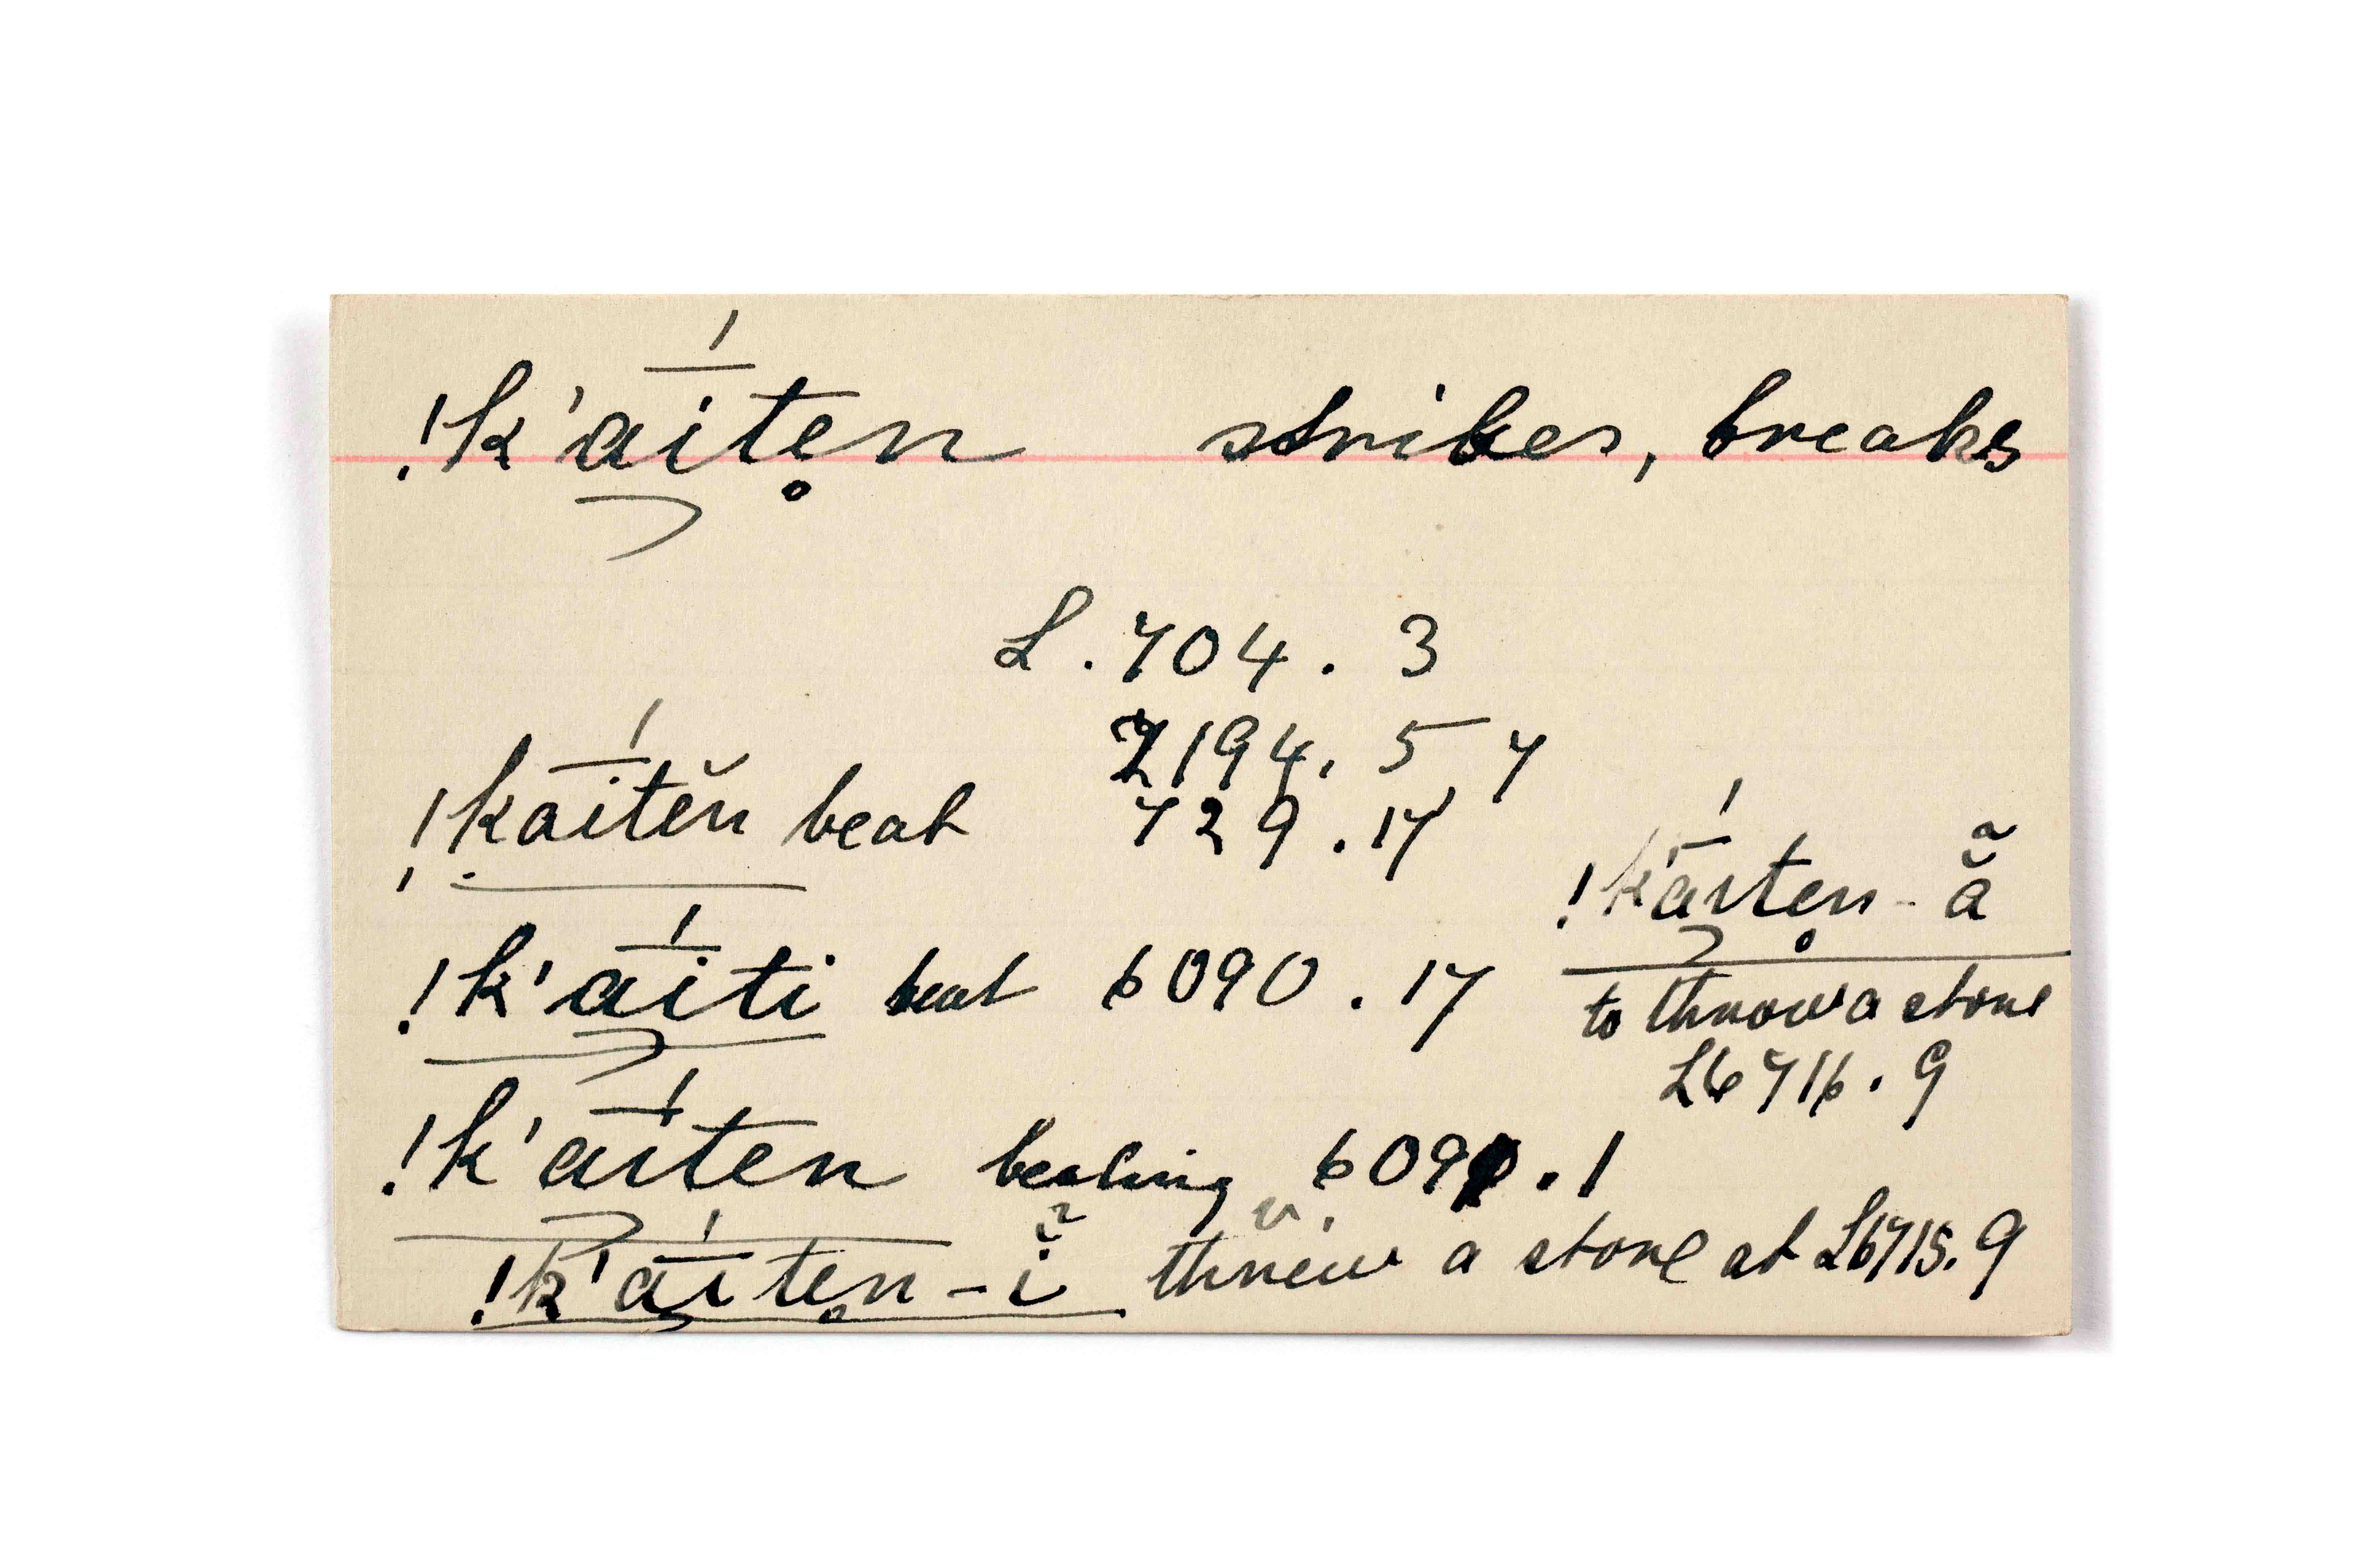 !k'a͞íten̥ strikes, breaks
L. 704. 3
2194. 5 7
!ka͞ítĕn beat 729. 17
!k'a͞íten̥-ã̆
!k'a͞íti beat 6090. 17
to throw a stone
L6716. 9
!k'a͞íten beating 6091. 1
!k'a͞íten̥-ĭ̃ threw a stone at L6715. 9